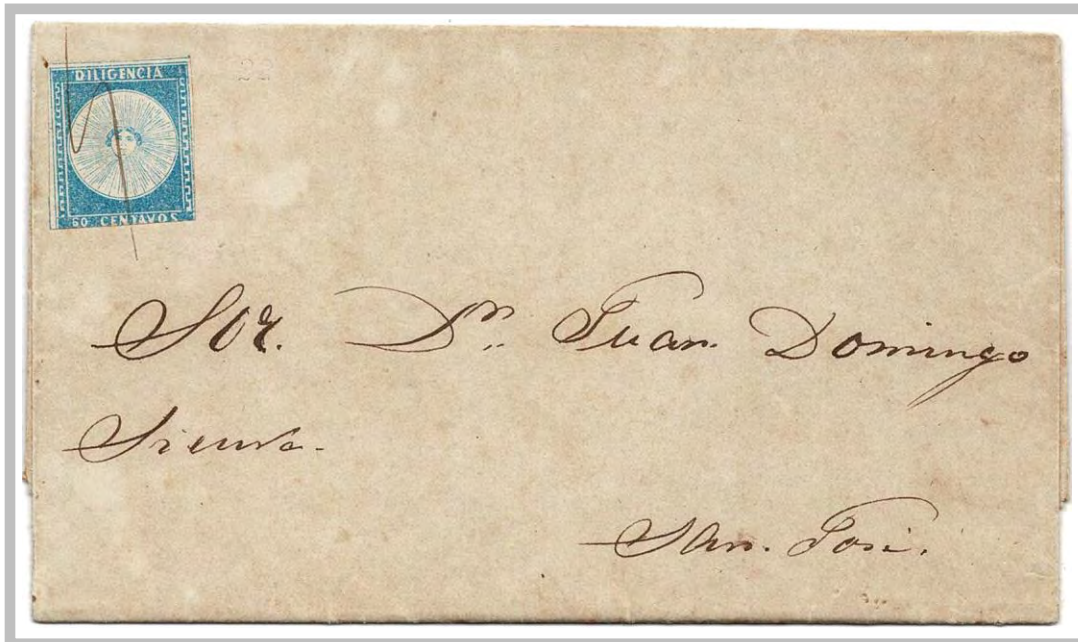 DILIGENCIA
60 CENTAVOS
Sor. Dn. Juan Domingo
San. José.